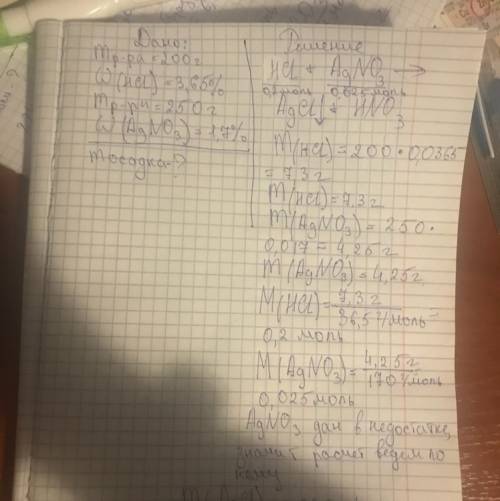 Дано:
mр-ра = 200г
ω(HCl) = 3,65%
mр-ра = 250г
ω(AgNO3) = 1,7%
mосадка-?
Решение
HCl + AgNO3 →
0,2моль 0,025моль
AgCl↓ + HNO3
m(HCl) = 200 • 0,0365
= 7,3 г
m(HCl) = 7,3 г
m(AgNO3) = 250 •
0,017 = 4,25г
m(AgNO3) = 4,25г
M(HCl) = 7,3 г / 36,5 г/моль =
0,2 моль
M(AgNO3) = 4,25 г / 170 г/моль
0,025 моль
AgNO3 дан в недостатке,
значит расчет ведем по
нему